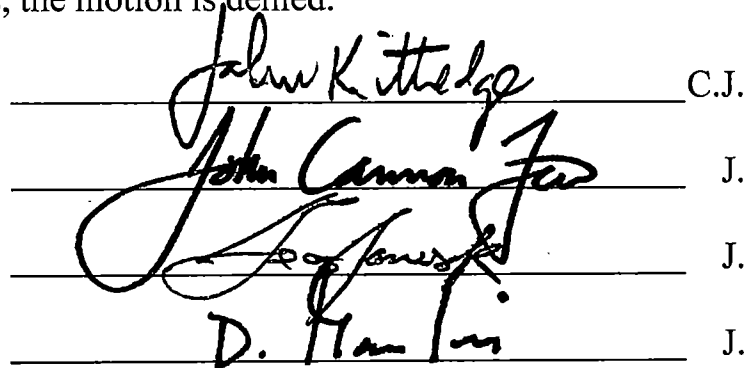 , the motion is denied.
John Kittredge C.J.
John Cannon Few J.
J.
D. J.